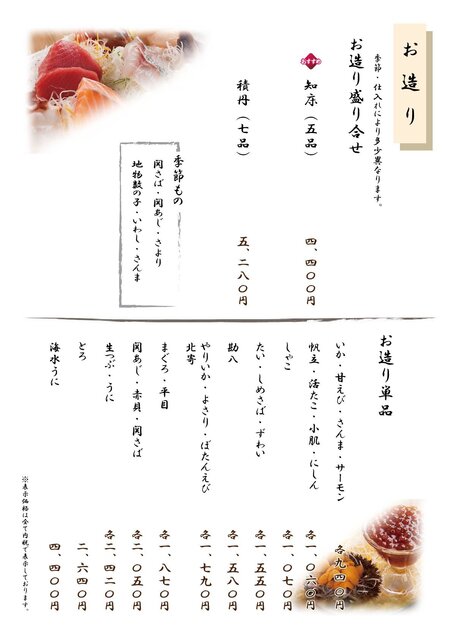 お造り
季節・仕入れにより多少異なります。
お造り盛り合せ
おすすめ
知床（五品） 四、四〇〇円
積丹（七品） 五、二八〇円
季節もの
関さば・関あじ・さより
地物数の子・いわし・さんま
お造り単品
いか・甘えび・さんま・サーモン 各九四〇円
帆立・活たこ・小肌・にしん 各一、〇六〇円
しゃこ 一、〇七〇円
たい・しめさば・ずわい 各一、五五〇円
勘八 一、五八〇円
やりいか・よさり・ぼたんえび 各一、七九〇円
北寄
まぐろ・平目 各一、八七〇円
関あじ・赤貝・関さば 各二、〇五〇円
生つぶ・うに 各二、四二〇円
とろ 二、六四〇円
海水うに 四、四〇〇円
※表示価格は全て内税で表示しております。